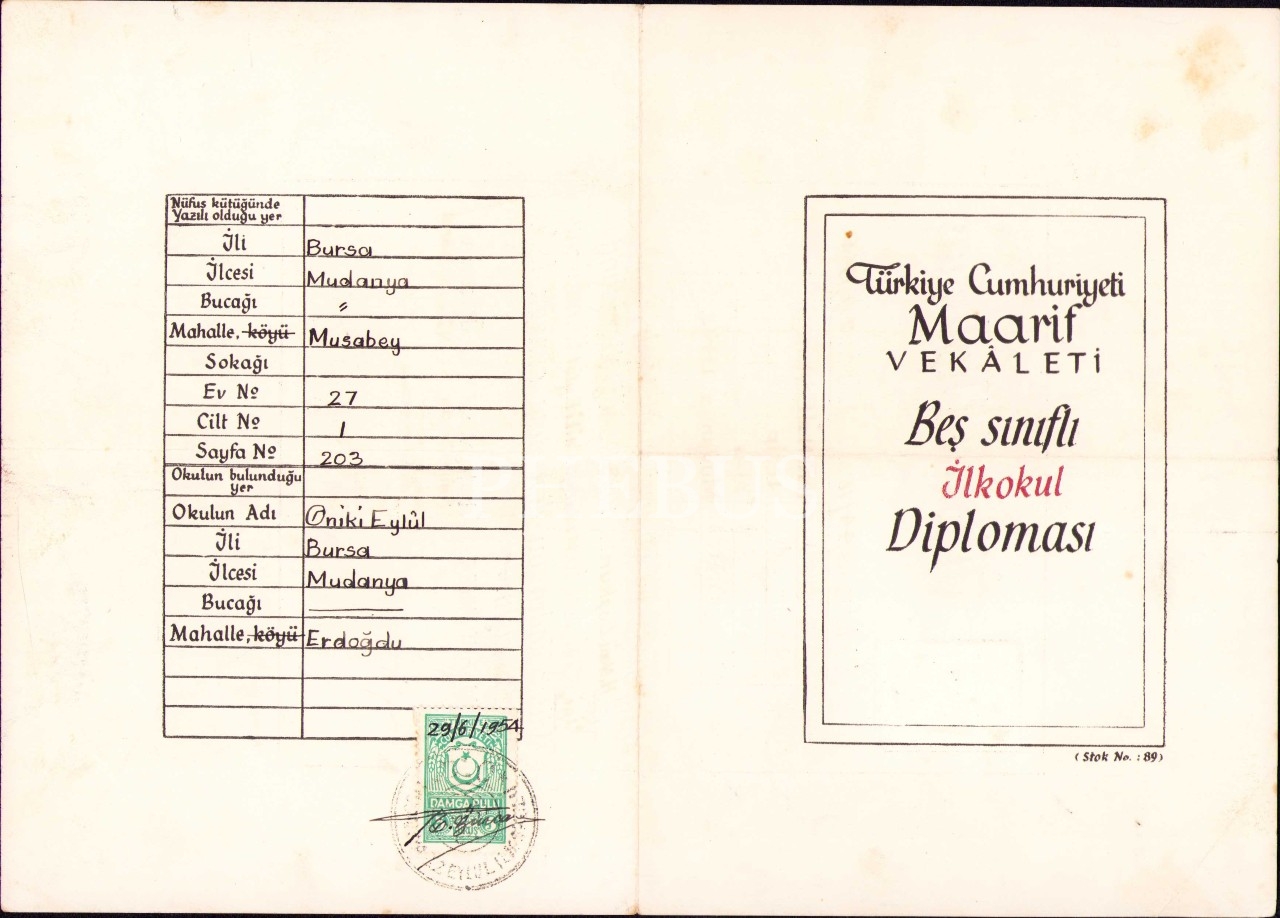 Nüfus kütüğünde
Yazılı olduğu yer
İli Bursa
İlcesi Mudanya
Bucağı "
Mahalle, köyü Musabey
Sokağı
Ev No 27
Cilt No 1
Sayfa No 203
Okulun bulunduğu
yer
Okulun Adı Oniki Eylûl
İli Bursa
İlcesi Mudanya
Bucağı
Mahalle, köyü Erdoğdu
29/6/1954
DAMGA PULU
Türkiye Cumhuriyeti
Maarif
VEKÂLETİ
Beş sınıflı
İlkokul
Diploması
(Stok No. : 89)